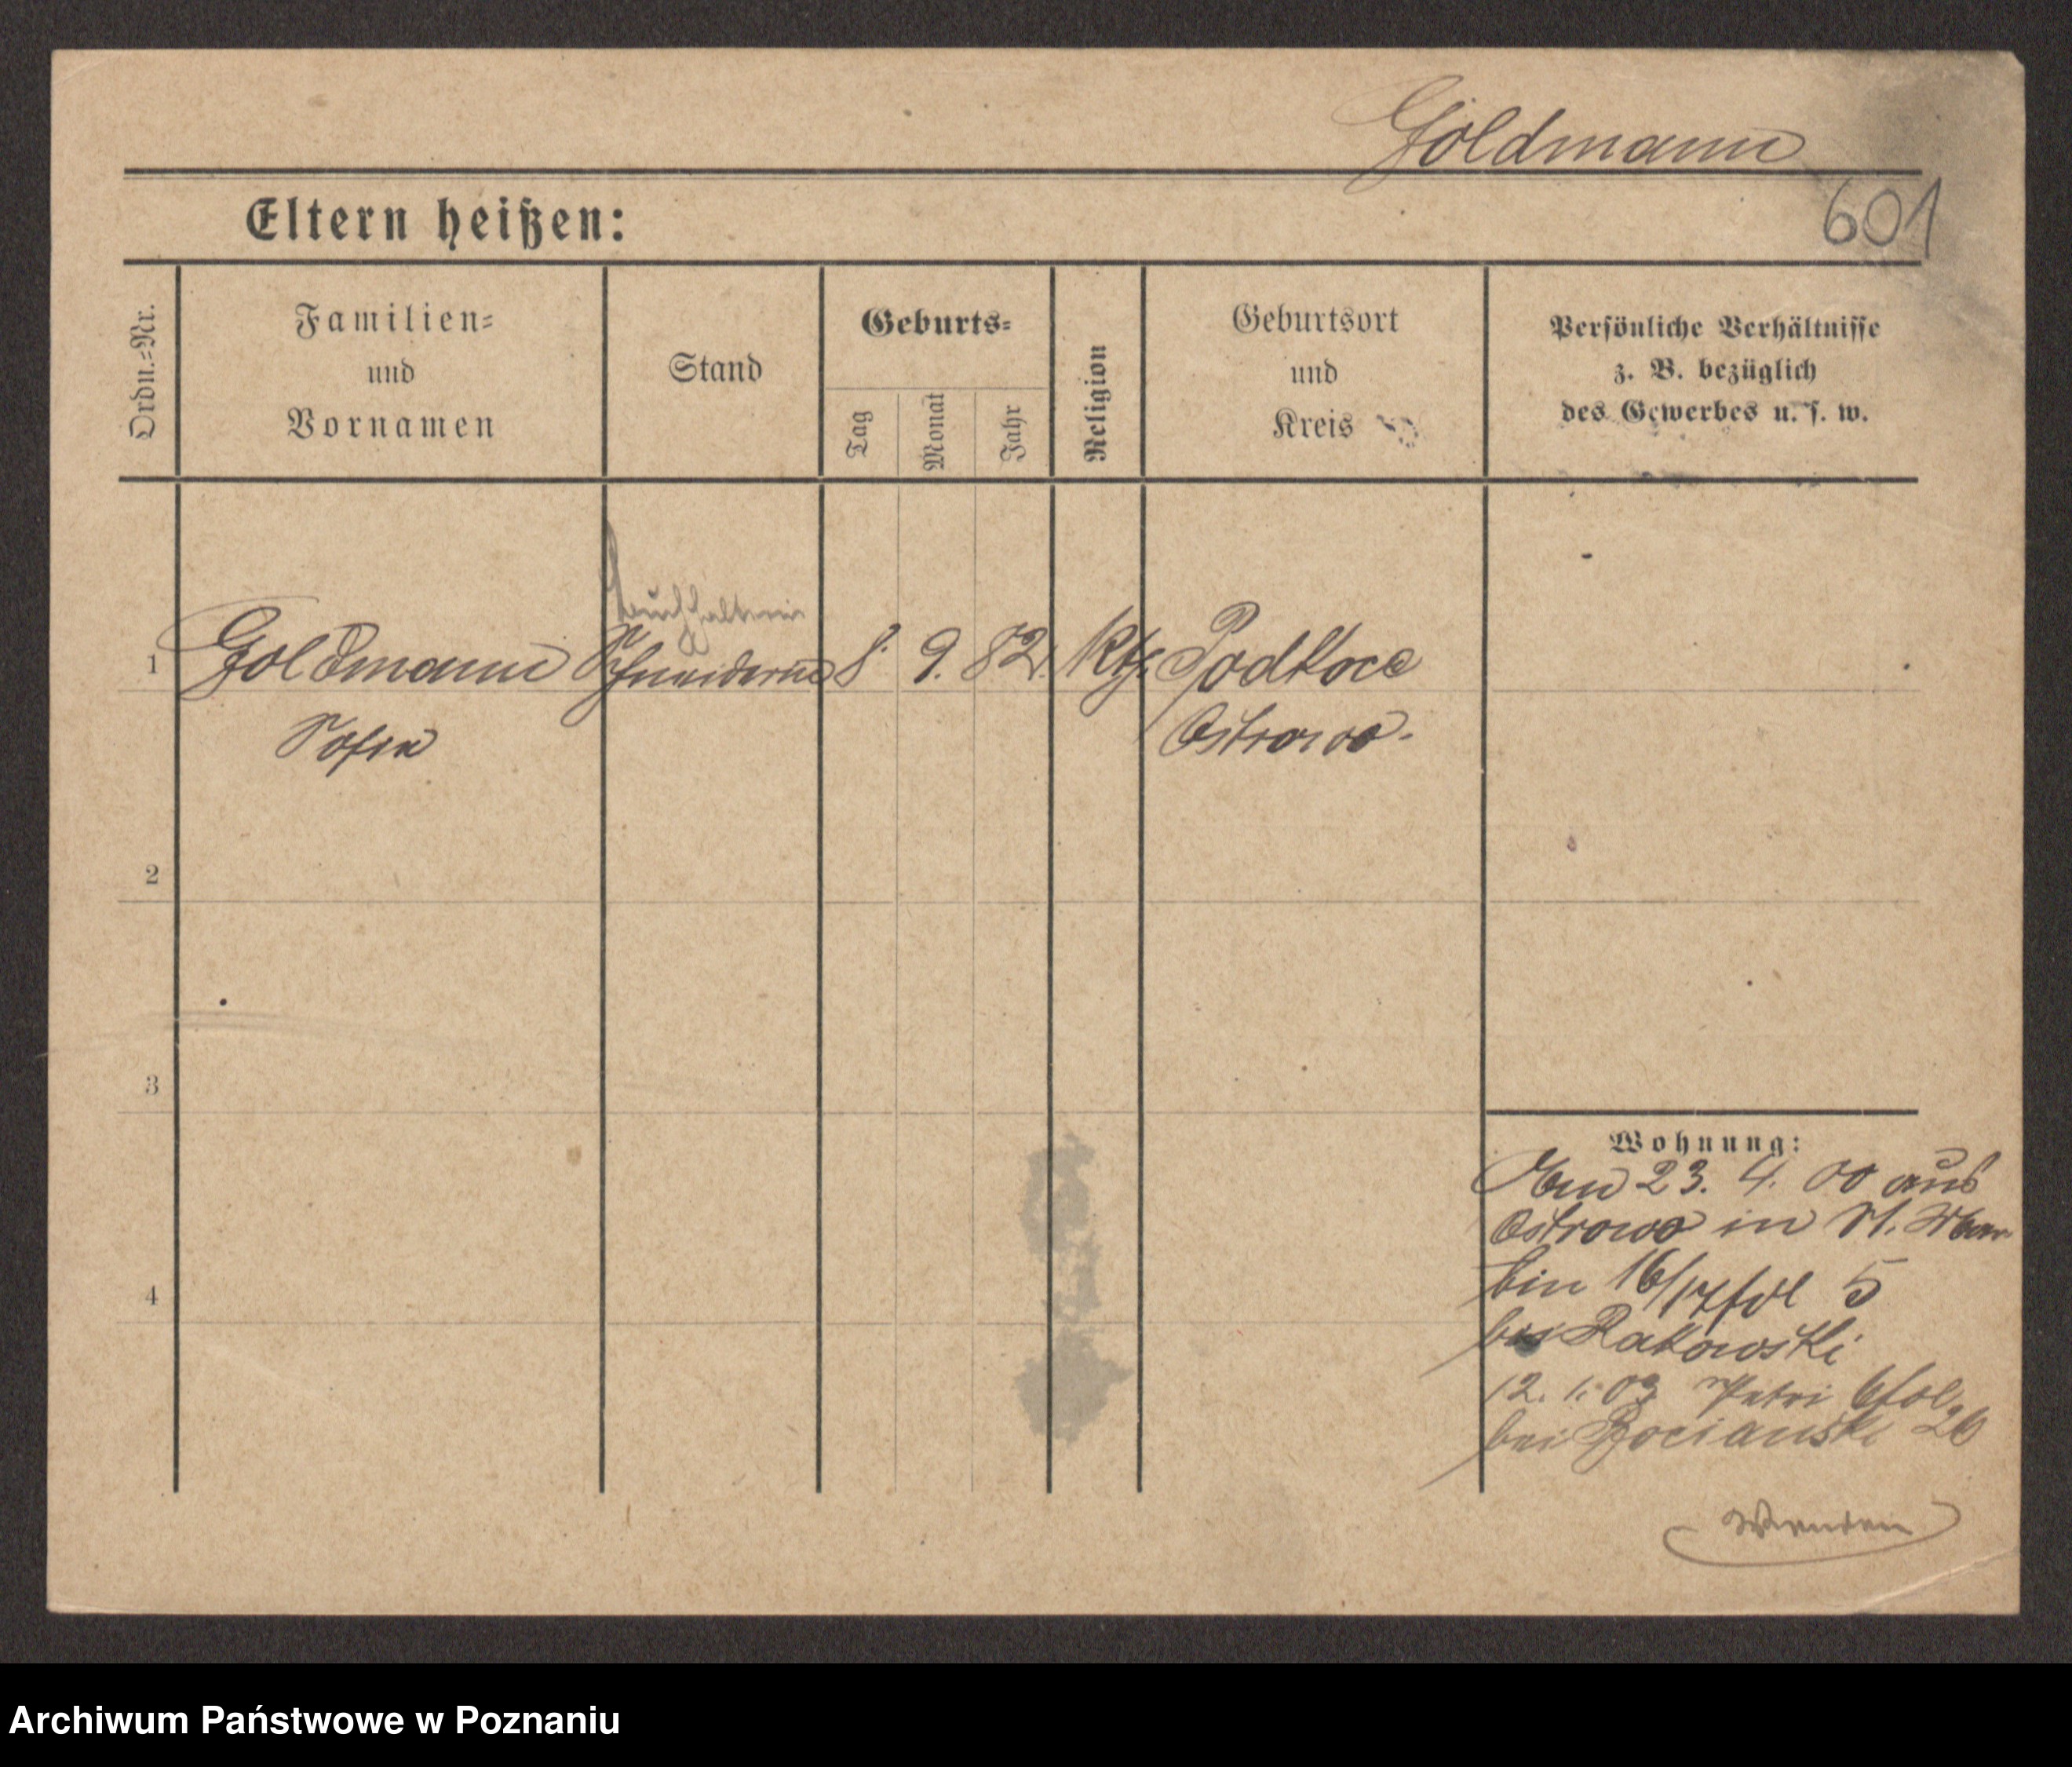 Goldmann
601
Eltern heißen:
Ordn.-Nr.
Familien-
und
Vornamen
Stand
Geburts-
Tag
Monat
Jahr
Religion
Geburtsort
und
Kreis
Persönliche Verhältnisse
z. B. bezüglich
des Gewerbes u. s. w.
Buchhalterin
1 Goldmann Schneiderin 8. 9. 82. Kth.
Sofia Ostrowo.
2
3
4
Wohnung:
23. 4. 00 aus
Ostrowo in St. Mar-
tin 16/17 fol 5
bei Rakowski
12. 1. 03 Petri 6 fol 26
bei Bocianski
Wenden
Archiwum Państwowe w Poznaniu